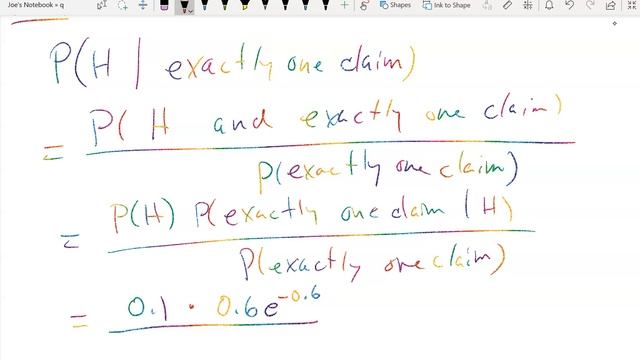 Joe's Notebook » q
Shapes Ink to Shape
P(H | exactly one claim)
= P( H and exactly one claim)
P(exactly one claim)
= P(H) P(exactly one claim | H)
P(exactly one claim)
= 0.1 · 0.6e^-0.6